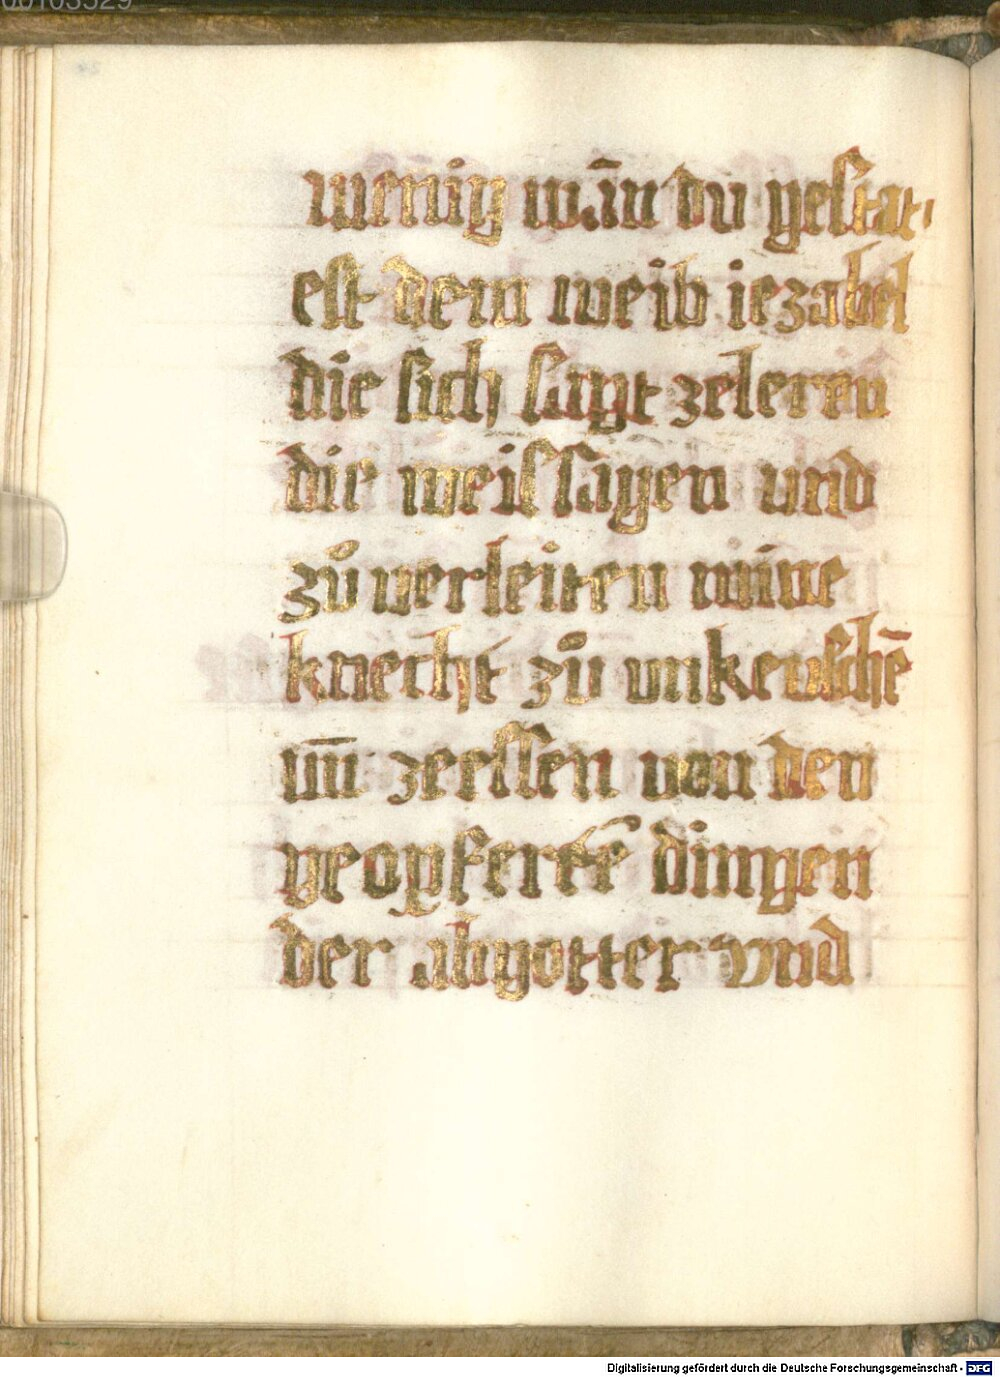 00103529
wenig wān du gestat
est dem weib iezabel
die sich sagt zeleren
die weissagen und
zů verleiten mine
knecht zů unkeuschē
uñ zeessen von den
geopfertē dingen
der abgotter vnd
Digitalisierung gefördert durch die Deutsche Forschungsgemeinschaft - DFG